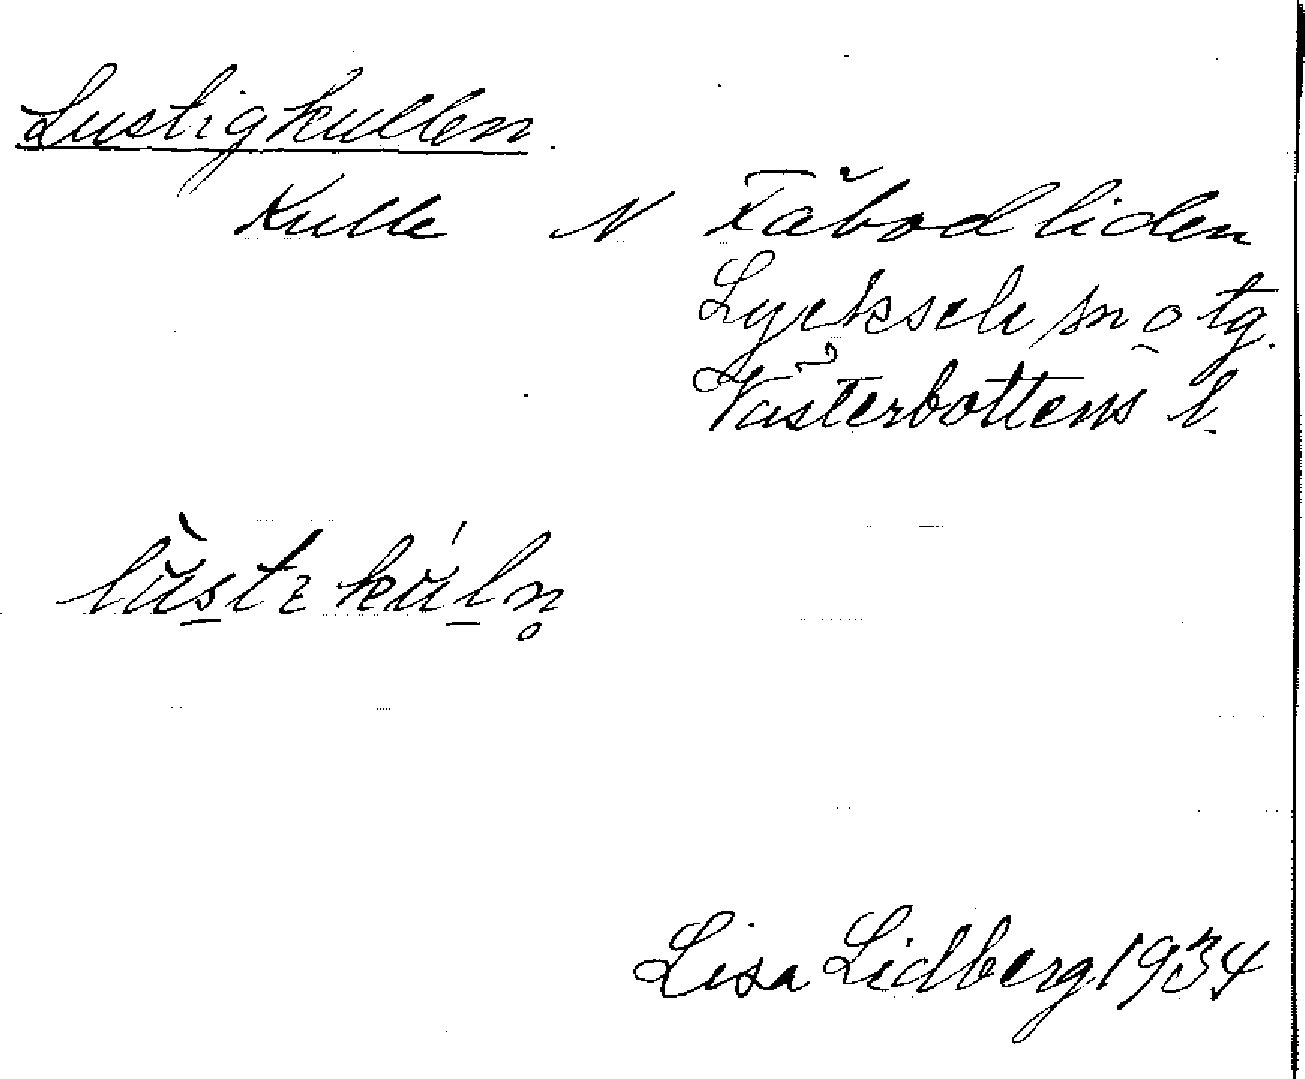 Lustigkullen.
Kulle N Fäbodliden
Lycksele sn o tg.
Västerbottens l.
Lisa Lidberg 1934